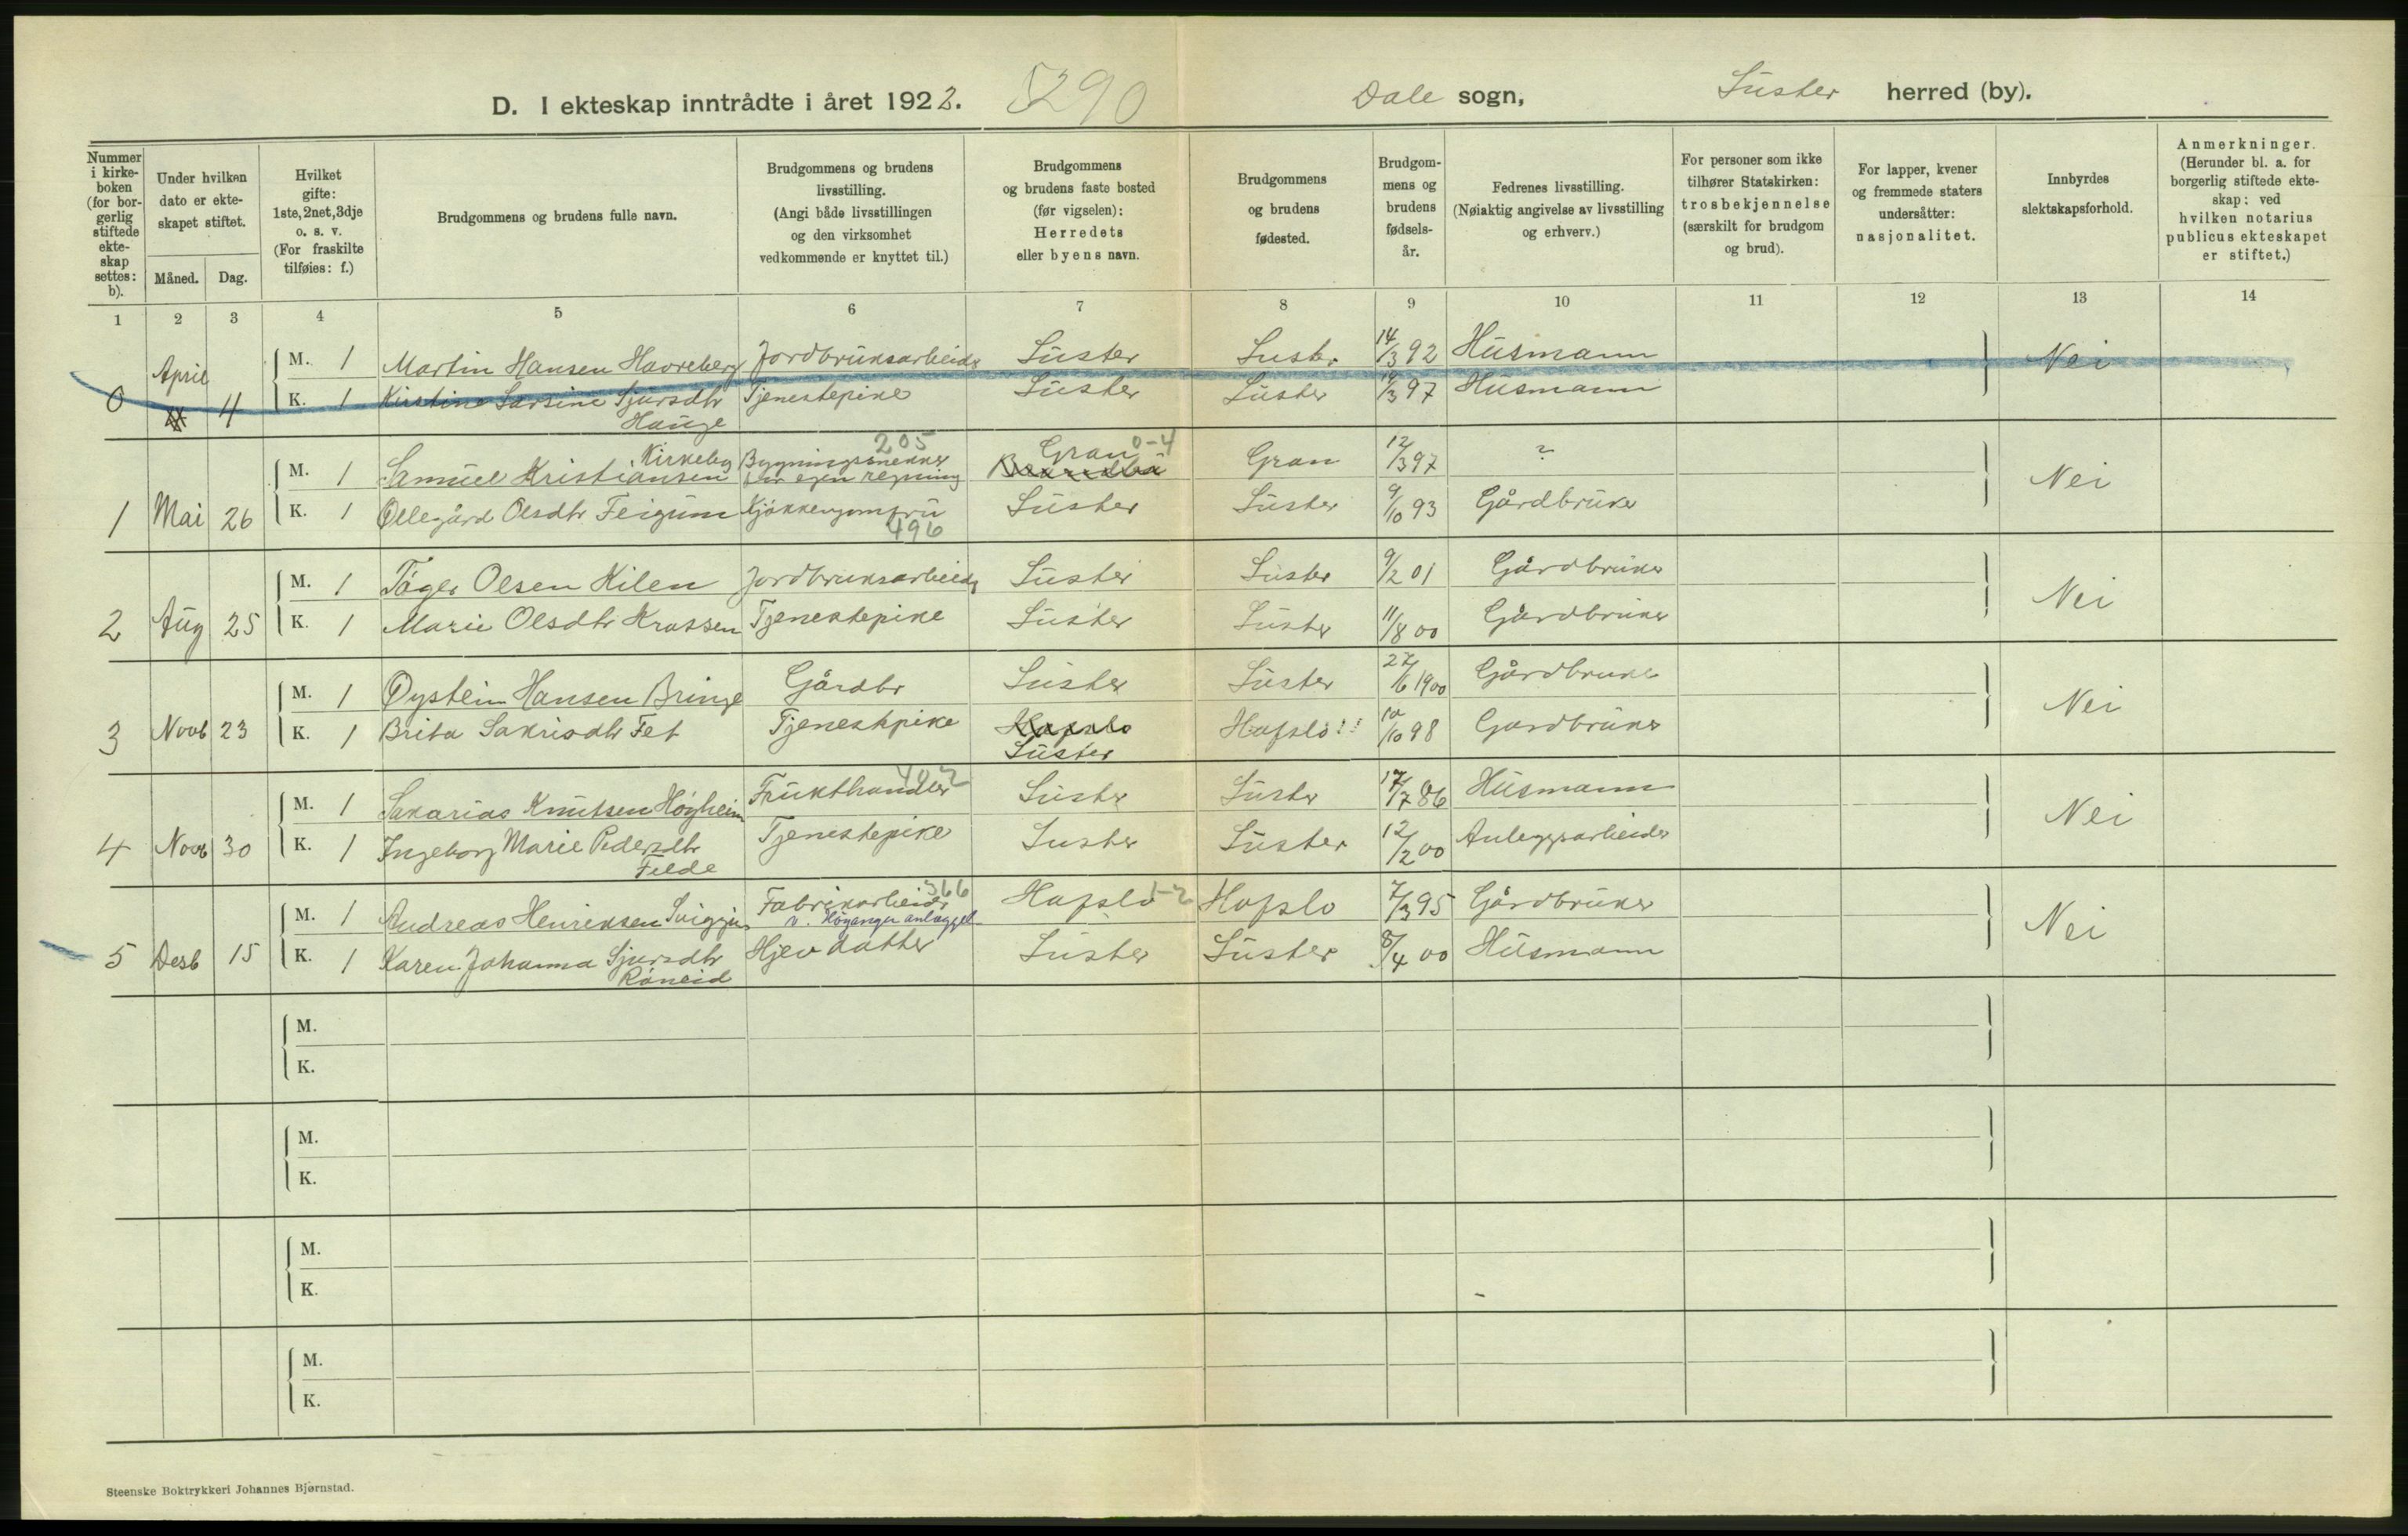 D. I ekteskap inntrådte i året 1922. 5290 Dale sogn, Luster herred (by).
Nummer i kirkeboken (for borgerlig stiftede ekteskap settes: b).
Under hvilken dato er ekteskapet stiftet.
Måned. Dag.
Hvilket gifte: 1ste, 2net, 3dje o. s. v. (For fraskilte tilføies: f.)
Brudgommens og brudens fulle navn.
Brudgommens og brudens livsstilling. (Angi både livsstillingen og den virksomhet vedkommende er knyttet til.)
Brudgommens og brudens faste bosted (før vigselen): Herredets eller byens navn.
Brudgommens og brudens fødested.
Brudgommens og brudens fødselsår.
Fedrenes livsstilling. (Nøiaktig angivelse av livsstilling og erhverv.)
For personer som ikke tilhører Statskirken: trosbekjennelse (særskilt for brudgom og brud).
For lapper, kvener og fremmede staters undersåtter: nasjonalitet.
Innbyrdes slektskapsforhold.
Anmerkninger. (Herunder bl. a. for borgerlig stiftede ekteskap: ved hvilken notarius publicus ekteskapet er stiftet.)
1 2 3 4 5 6 7 8 9 10 11 12 13 14
0 April 4 M. 1 Martin Hansen Havreberg Jordbruksarbeider Luster Luster 14/3 92 Husmann Nei
K. 1 Kirstine Larsine Sjursdtr Hauge Tjenestepike Luster Luster /3 97 Husmann
205 0-4
1 Mai 26 M. 1 Samuel Kristiansen Kirkeby Bygningssnekker for egen regning Gran Gran 12/3 97 ? Nei
K. 1 Ollegård Olsdtr Feigum Kjøkkenjomfru Luster Luster 9/10 93 Gårdbruker
496
2 Aug 25 M. 1 Tøger Olsen Kilen Jordbruksarbeider Luster Luster 9/2 01 Gårdbruker Nei
K. 1 Marie Olsdtr Krossen Tjenestepike Luster Luster 11/8 00 Gårdbruker
3 Novb 23 M. 1 Øystein Hansen Bringe Gårdbr Luster Luster 27/6 1900 Gårdbruker Nei
K. 1 Brita Sakrisdtr Fet Tjenestepike Hafslo Luster Hafslo !! 10/10 98 Gardbruker
402
4 Novb 30 M. 1 Sakarias Knutsen Høyheim Frukthandler Luster Luster 17/7 86 Husmann Nei
K. 1 Ingeborg Marie Pedersdtr Felde Tjenestepike Luster Luster 12/2 00 Anleggsarbeider
366 1-2
5 Desb 15 M. 1 Andreas Henriksen Fabrikarbeider v. Höyanger anlegget Hafslo Hafslo 7/3 95 Gårdbruker Nei
K. 1 Karen Johanna Sjursdtr Røneid Hjev datter Luster Luster 8/4 00 Husmann
M.
K.
M.
K.
M.
K.
M.
K.
Steenske Boktrykkeri Johannes Bjørnstad.